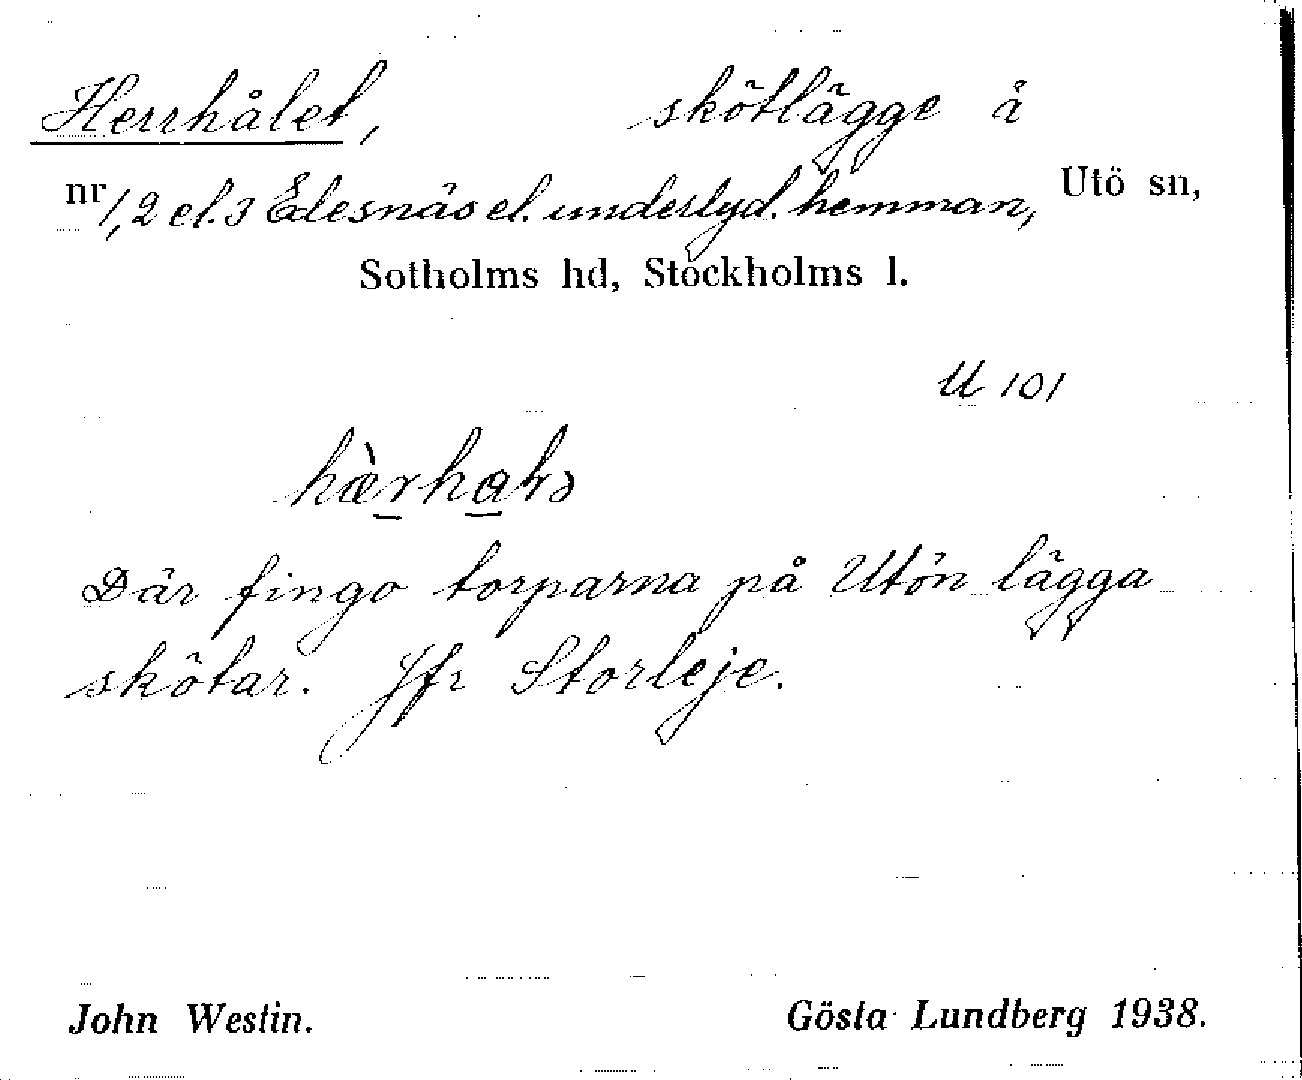 Herrhålet, skötlägge å
nr 1, 2 el. 3 Edesnäs el. underlyd. hemman, Utö sn,
Sotholms hd, Stockholms l.
U 101
Där fingo torparna på Utön lägga
skötar. Jfr Storleje.
John Westin. Gösta Lundberg 1938.